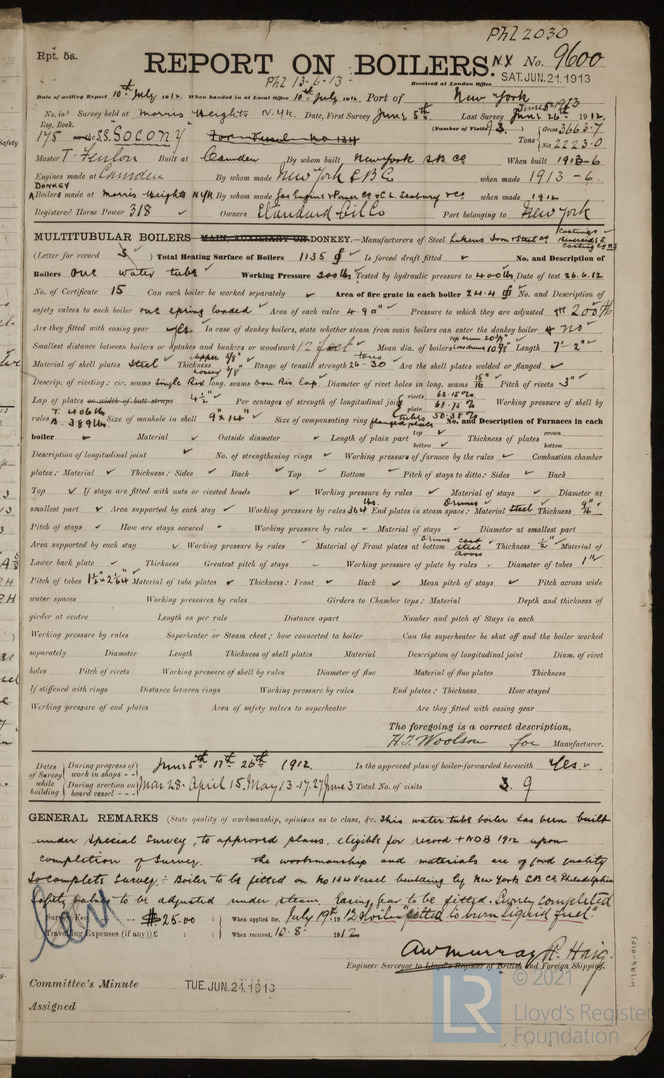 Phl 2030
Rpt. 5a.
REPORT ON BOILERS. N.Y. No. 9600
Phl 13-6-13
Received at London Office SAT. JUN. 21. 1913
Date of writing Report 10th July 1912. When handed in at Local Office 10th July 1912. Port of New York
June 5 1913
No. in Survey held at Morris Heights N.Y. Date, First Survey June 5th Last Survey June 26th 1912.
Reg. Book. (Number of Visits 3.
175 S.S. "Socony" Tons Gross 3663.7
Net 2223.0
Master T. Fenlon Built at Camden By whom built New York S.B. Co When built 1913-6
Engines made at Camden By whom made New York S B Co when made 1913-6.
DONKEY
Boilers made at Morris Heights N.Y. By whom made Gas Engine & Power Co & C.L. Seabury & Co when made 1912
Registered Horse Power 318 Owners Standard Oil Co Port belonging to New York
MULTITUBULAR BOILERS MAIN, AUXILIARY OR DONKEY.—Manufacturers of Steel Lukens Iron & Steel Co
(Letter for record S) Total Heating Surface of Boilers 1135 Is forced draft fitted No. and Description of
Boilers One water tube Working Pressure 200 lbs Tested by hydraulic pressure to 400 lbs Date of test 26.6.12
No. of Certificate 15 Can each boiler be worked separately Area of fire grate in each boiler 24.4 No. and Description of
safety valves to each boiler one spring loaded Area of each valve 4.90" Pressure to which they are adjusted 200 lb
Are they fitted with easing gear yes In case of donkey boilers, state whether steam from main boilers can enter the donkey boiler no
Smallest distance between boilers or uptakes and bunkers or woodwork 12 feet Mean dia. of boilers Length 7'-2"
Material of shell plates Steel Thickness Range of tensile strength 26-30 tons Are the shell plates welded or flanged
Descrip. of riveting: cir. seams Single Riv long. seams Diameter of rivet holes in long. seams 15/16" Pitch of rivets 3"
Lap of plates or width of butt straps 4½" Per centages of strength of longitudinal joint rivets 68.15% plate 68.75% Working pressure of shell by
rules T. 406 lb A. 389 lb Size of manhole in shell 9" x 14" Size of compensating ring flanged plate No. and Description of Furnaces in each
boiler Material Outside diameter Length of plain part top bottom Thickness of plates crown bottom
Description of longitudinal joint No. of strengthening rings Working pressure of furnace by the rules Combustion chamber
plates: Material Thickness: Sides Back Top Bottom Pitch of stays to ditto: Sides Back
Top If stays are fitted with nuts or riveted heads Working pressure by rules Material of stays Diameter at
smallest part Area supported by each stay Working pressure by rules 364 lbs End plates in steam space: Material Drums steel Thickness 9/16"
Pitch of stays How are stays secured Working pressure by rules Material of stays Diameter at smallest part
Area supported by each stay Working pressure by rules Material of Front plates at bottom Drums cast steel doors Thickness ½" Material of
Lower back plate Thickness Greatest pitch of stays Working pressure of plate by rules Diameter of tubes 1"
Pitch of tubes Material of tube plates Thickness: Front Back Mean pitch of stays Pitch across wide
water spaces Working pressures by rules Girders to Chamber tops: Material Depth and thickness of
girder at centre Length as per rule Distance apart Number and pitch of Stays in each
Working pressure by rules Superheater or Steam chest; how connected to boiler Can the superheater be shut off and the boiler worked
separately Diameter Length Thickness of shell plates Material Description of longitudinal joint Diam. of rivet
holes Pitch of rivets Working pressure of shell by rules Diameter of flue Material of flue plates Thickness
If stiffened with rings Distance between rings Working pressure by rules End plates: Thickness How stayed
Working pressure of end plates Area of safety valves to superheater Are they fitted with easing gear
The foregoing is a correct description,
H.T. Woolson for Manufacturer.
Dates of Survey while building During progress of work in shops - - June 5th 17th 26th 1912. Is the approved plan of boiler forwarded herewith Yes.
During erection on board vessel - - - Mar 28. April 15. May 13-17.27 June 3 Total No. of visits 3. 9
GENERAL REMARKS (State quality of workmanship, opinions as to class, &c. This water tube boiler has been built
under special survey, to approved plans, eligible for record + NDB 1912 upon
completion of Survey. The workmanship and materials are of good quality
To complete Survey:- Boiler to be fitted on No 134 Vessel building by New York S.B. Co Philadelphia
Safety valves to be adjusted under steam, Easing gear to be fitted. Survey completed
"Boiler fitted to burn liquid fuel"
Survey Fee ... ... $25.00 When applied for, July 19th 1912
Travelling Expenses (if any) £ : : When received, 10.8. 1912
A W Murray R. Haig
Engineer Surveyor to Lloyd's Register of British and Foreign Shipping.
Committee's Minute TUE. JUN. 24. 1913
Assigned
W1294-0103
LR © 2021
Lloyd's Register
Foundation